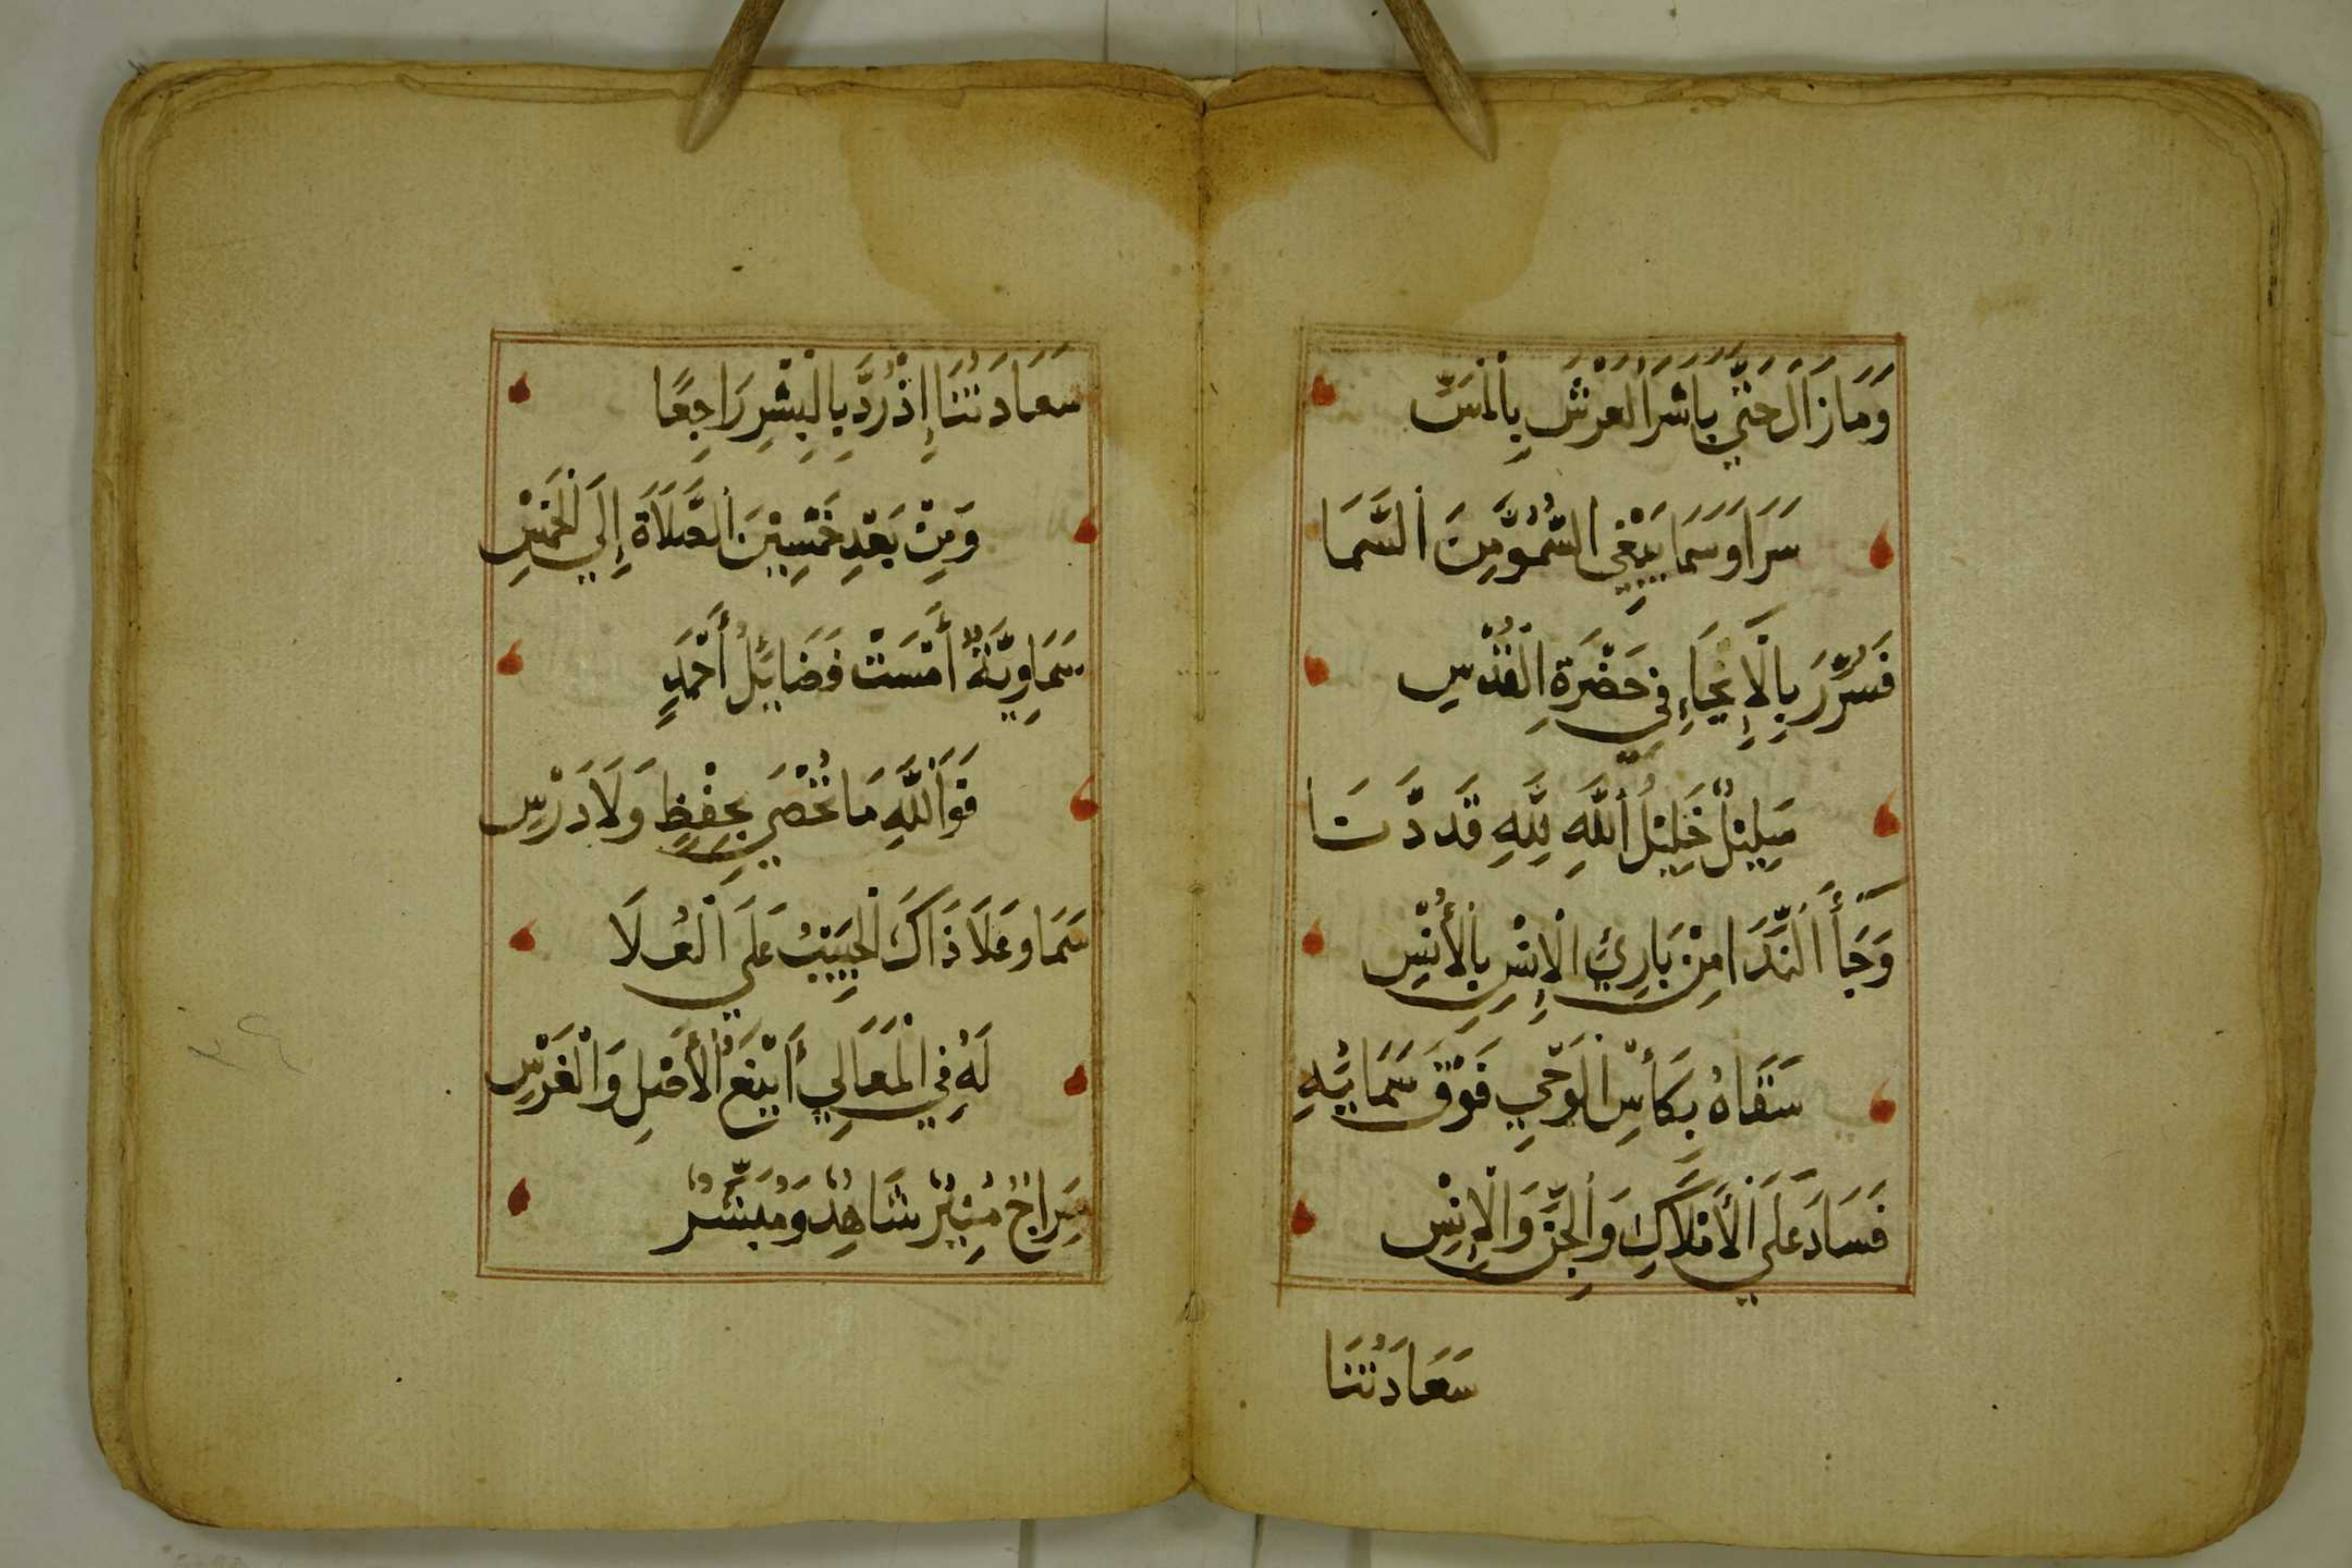 وَمَا زَالَ حَتَّي بَاشَرَ الْعَرْشَ بِالْمَسِّ
سَرَا وَسَمَا يَبْغِي السُّمُوَّ مِنَ السَّمَا
فَسُرِّرَ بِالْإِيْحَاءِ فِي حَضْرَةِ الْقُدْسِ
خَلِيْلُ اللَّهِ لِلَّهِ قَد دَّنَا
وَجَأَ النِّدَا مِنْ بَارِئِ الْإِنْسِ بِالْأُنْسِ
سَقَاهُ بِكَأْسِ الْوَحْيِ فَوْقَ سَمَائِهِ
فَسَادَ عَلَي الْأَمْلَاكِ وَالْجِنِّ وَالْإِنْسِ
سَعَادَتُنَا
سَعَادَتُنَا إِذْ رُدَّ بِالْبِشْرِ رَاجِعًا
وَمِنْ بَعْدِ خَمْسِيْنَ الصَّلَاةَ إِلَي الْخَمْسِ
سَمَاوِيَّةٌ أَمْسَتْ فَضَائِلُ أَحْمَدٍ
فَوَاللَّهِ مَا تُحْصَي بِحِفْظٍ وَلَا دَرْسِ
سَمَا وَعَلَا ذَاكَ الْحَبِيْبُ عَلَي الْعُلَا
لَهُ فِي الْمَعَالِي أَيْنَعُ الْأَصْلِ وَالْغَرْسِ
سِرَاجٌ مُنِيْرٌ شَاهِدٌ وَمُبَشِّرٌ